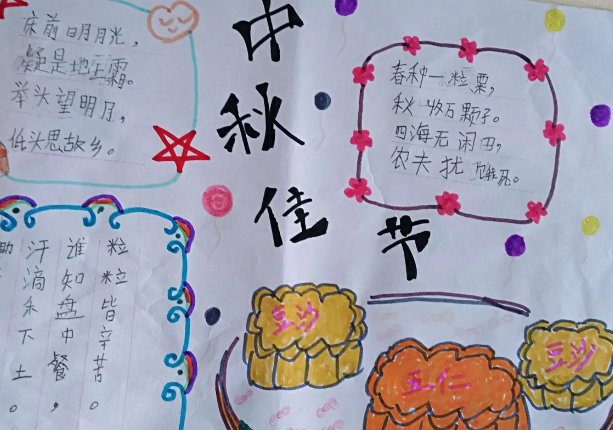 床前明月光，
疑是地上霜。
举头望明月，
低头思故乡。
中秋佳节
春种一粒粟，
秋收万颗子。
四海无闲田，
农夫扰饿死。
汗滴禾下土。
谁知盘中餐，
粒粒皆辛苦。
豆沙
五仁
豆沙